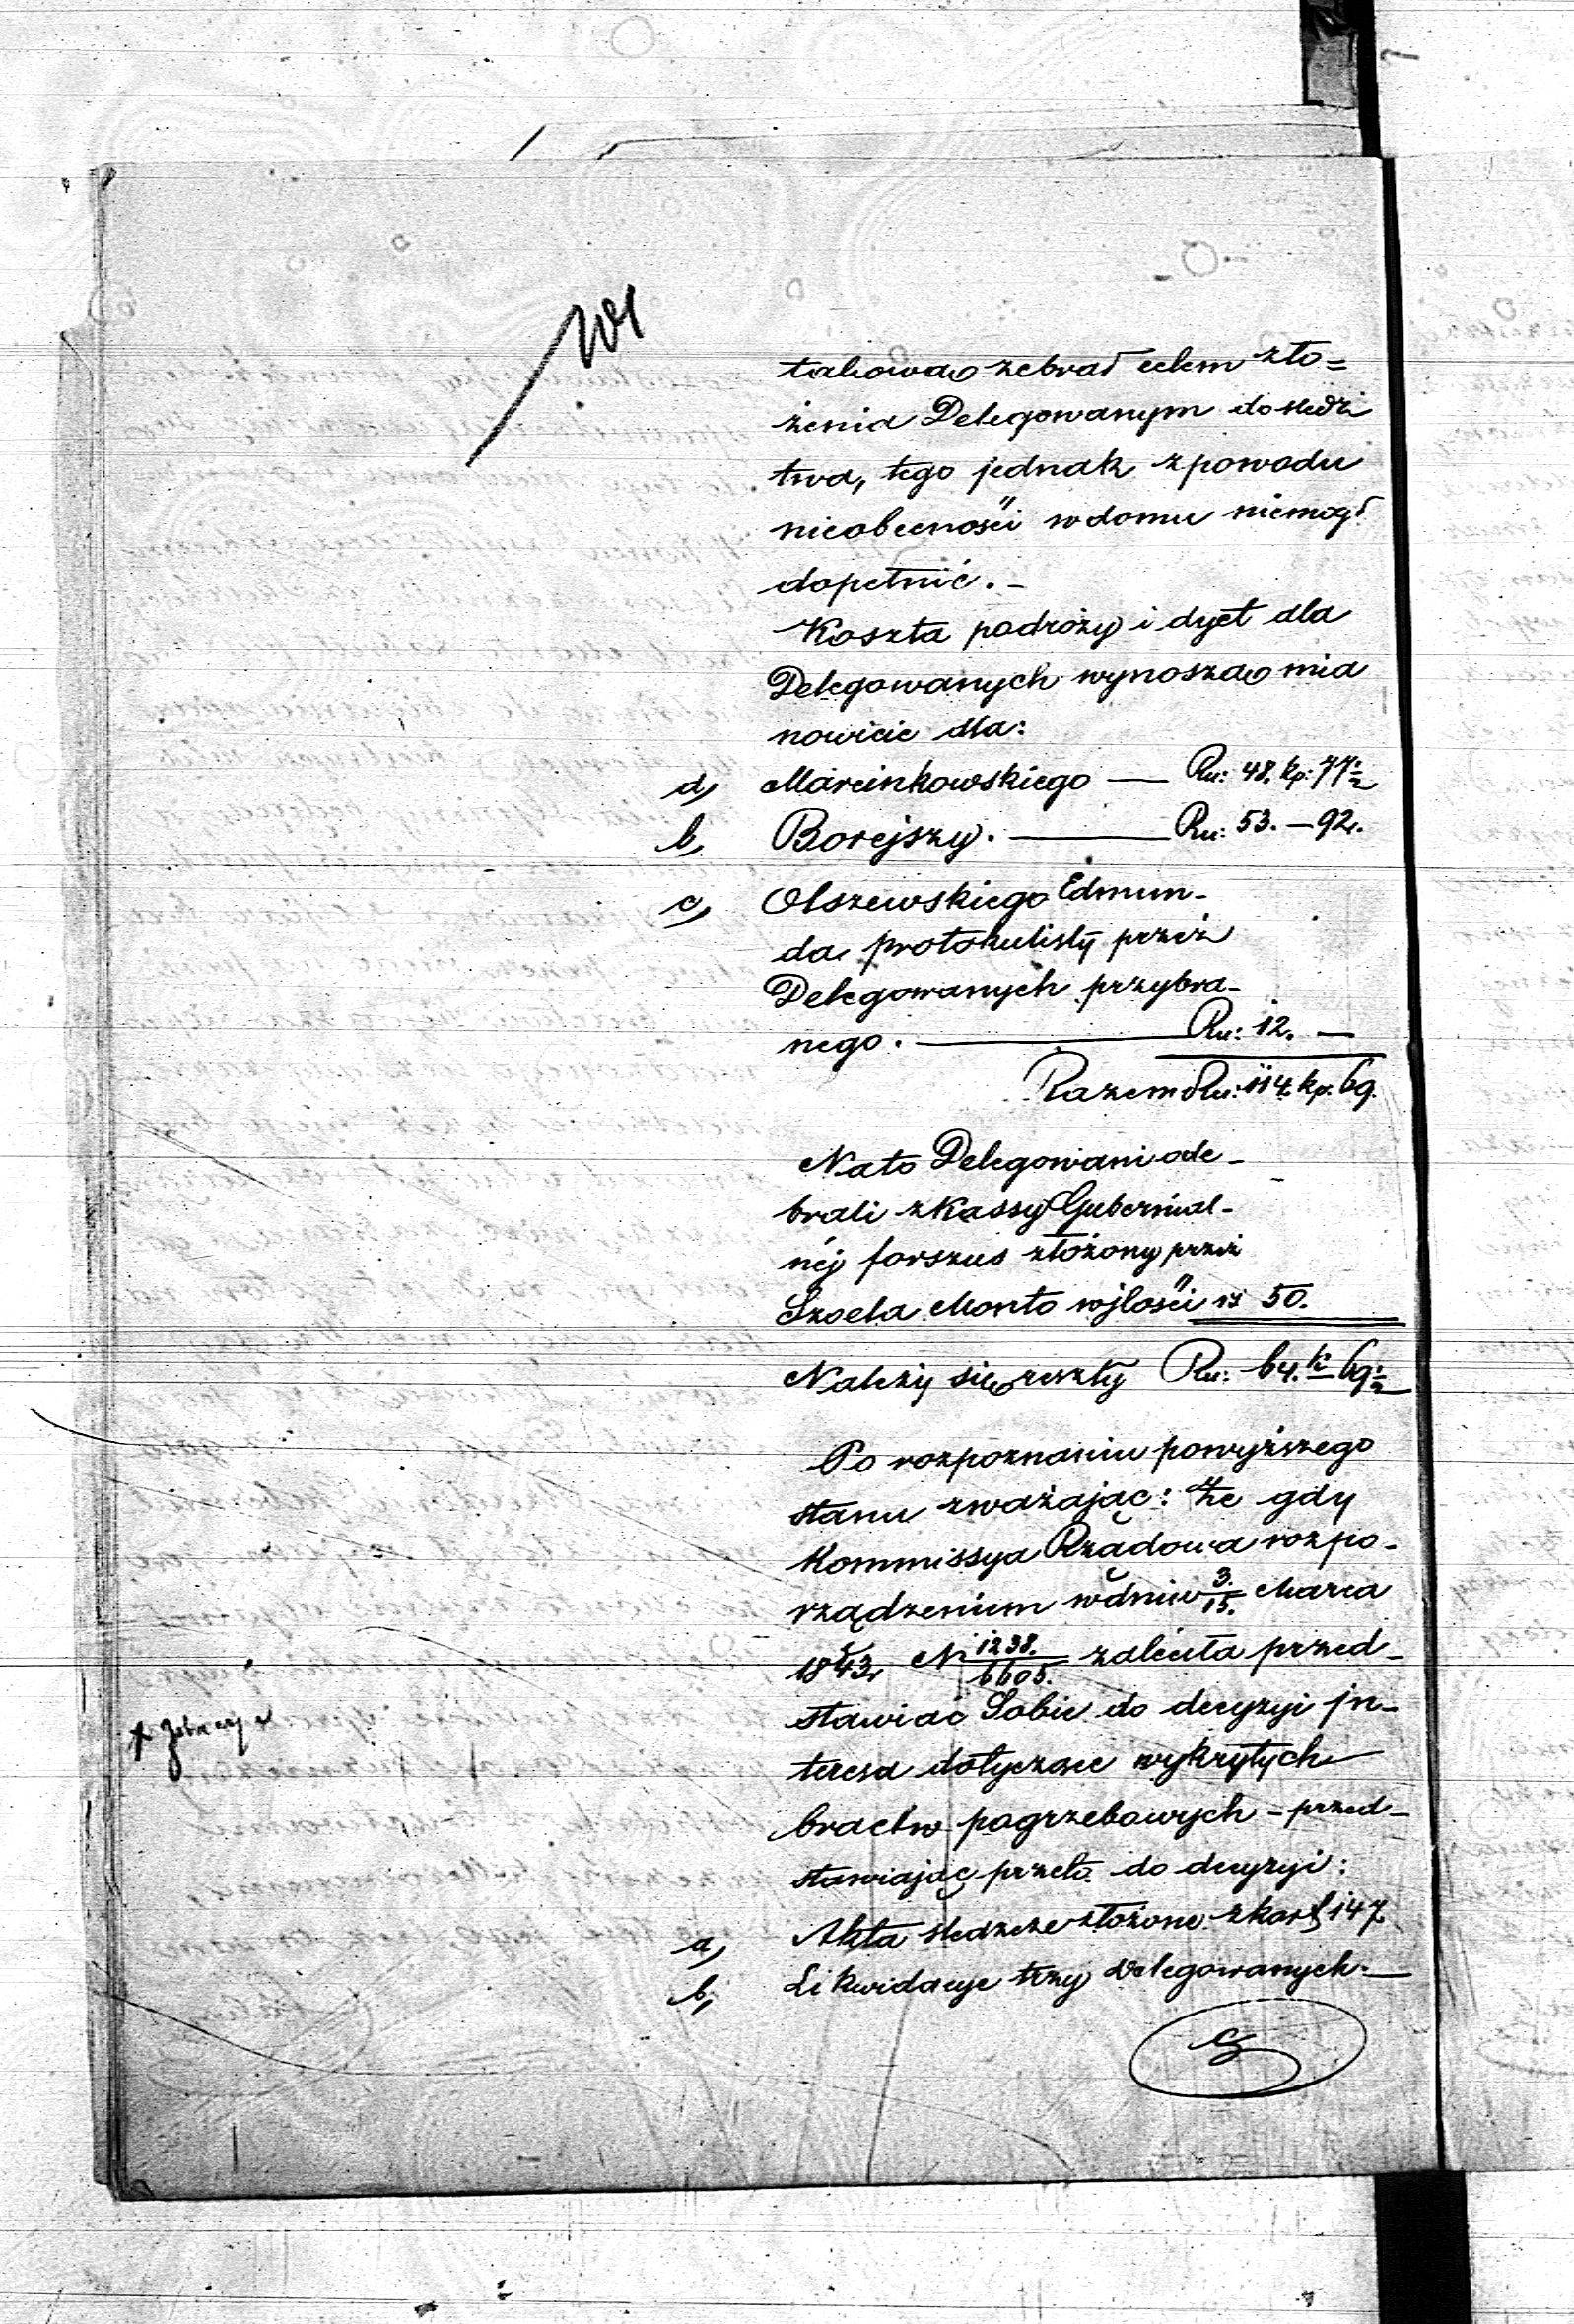 takową zebrał celem zło=
żenia Delegowanym do śledz
twa, tego jednak z powodu
nieobecności w domu niemogł
dopełnić. –
Koszta podróży i dyet dla
Delegowanych wynoszą mia
nowicie dla:
a, Marcinkowskiego — Ru: 48. kp: 77½
b, Borejszy. — Ru: 53. — 92.
c, Olszewskiego Edmun-
da protokulisty przez
Delegowanych przybra-
nego. — Ru: 12. —
Razem Ru: 114. kp. 69.
Nato Delegowani ode-
brali z Kassy Gubernial-
néj forszus złożony przez
Szoela Monto wjlości rs 50.
Należy się reszty Ru: 64. k 69½
Po rozpoznaniu powyższego
stanu zważając: że gdy
Kommissya Rządowa rozpo-
rządzeniem w dniu 3/15. Marca
1843 N 1238./6605. zaleciła przed-
stawiać Sobie do decyzyi jn-
teresa dotyczące wykrytych
bractw pogrzebowych – przed-
stawiając przeto do decyzyi:
a, Akta śledcze złożone z kart 147
b, Likwidacye trzy Delegowanych. —